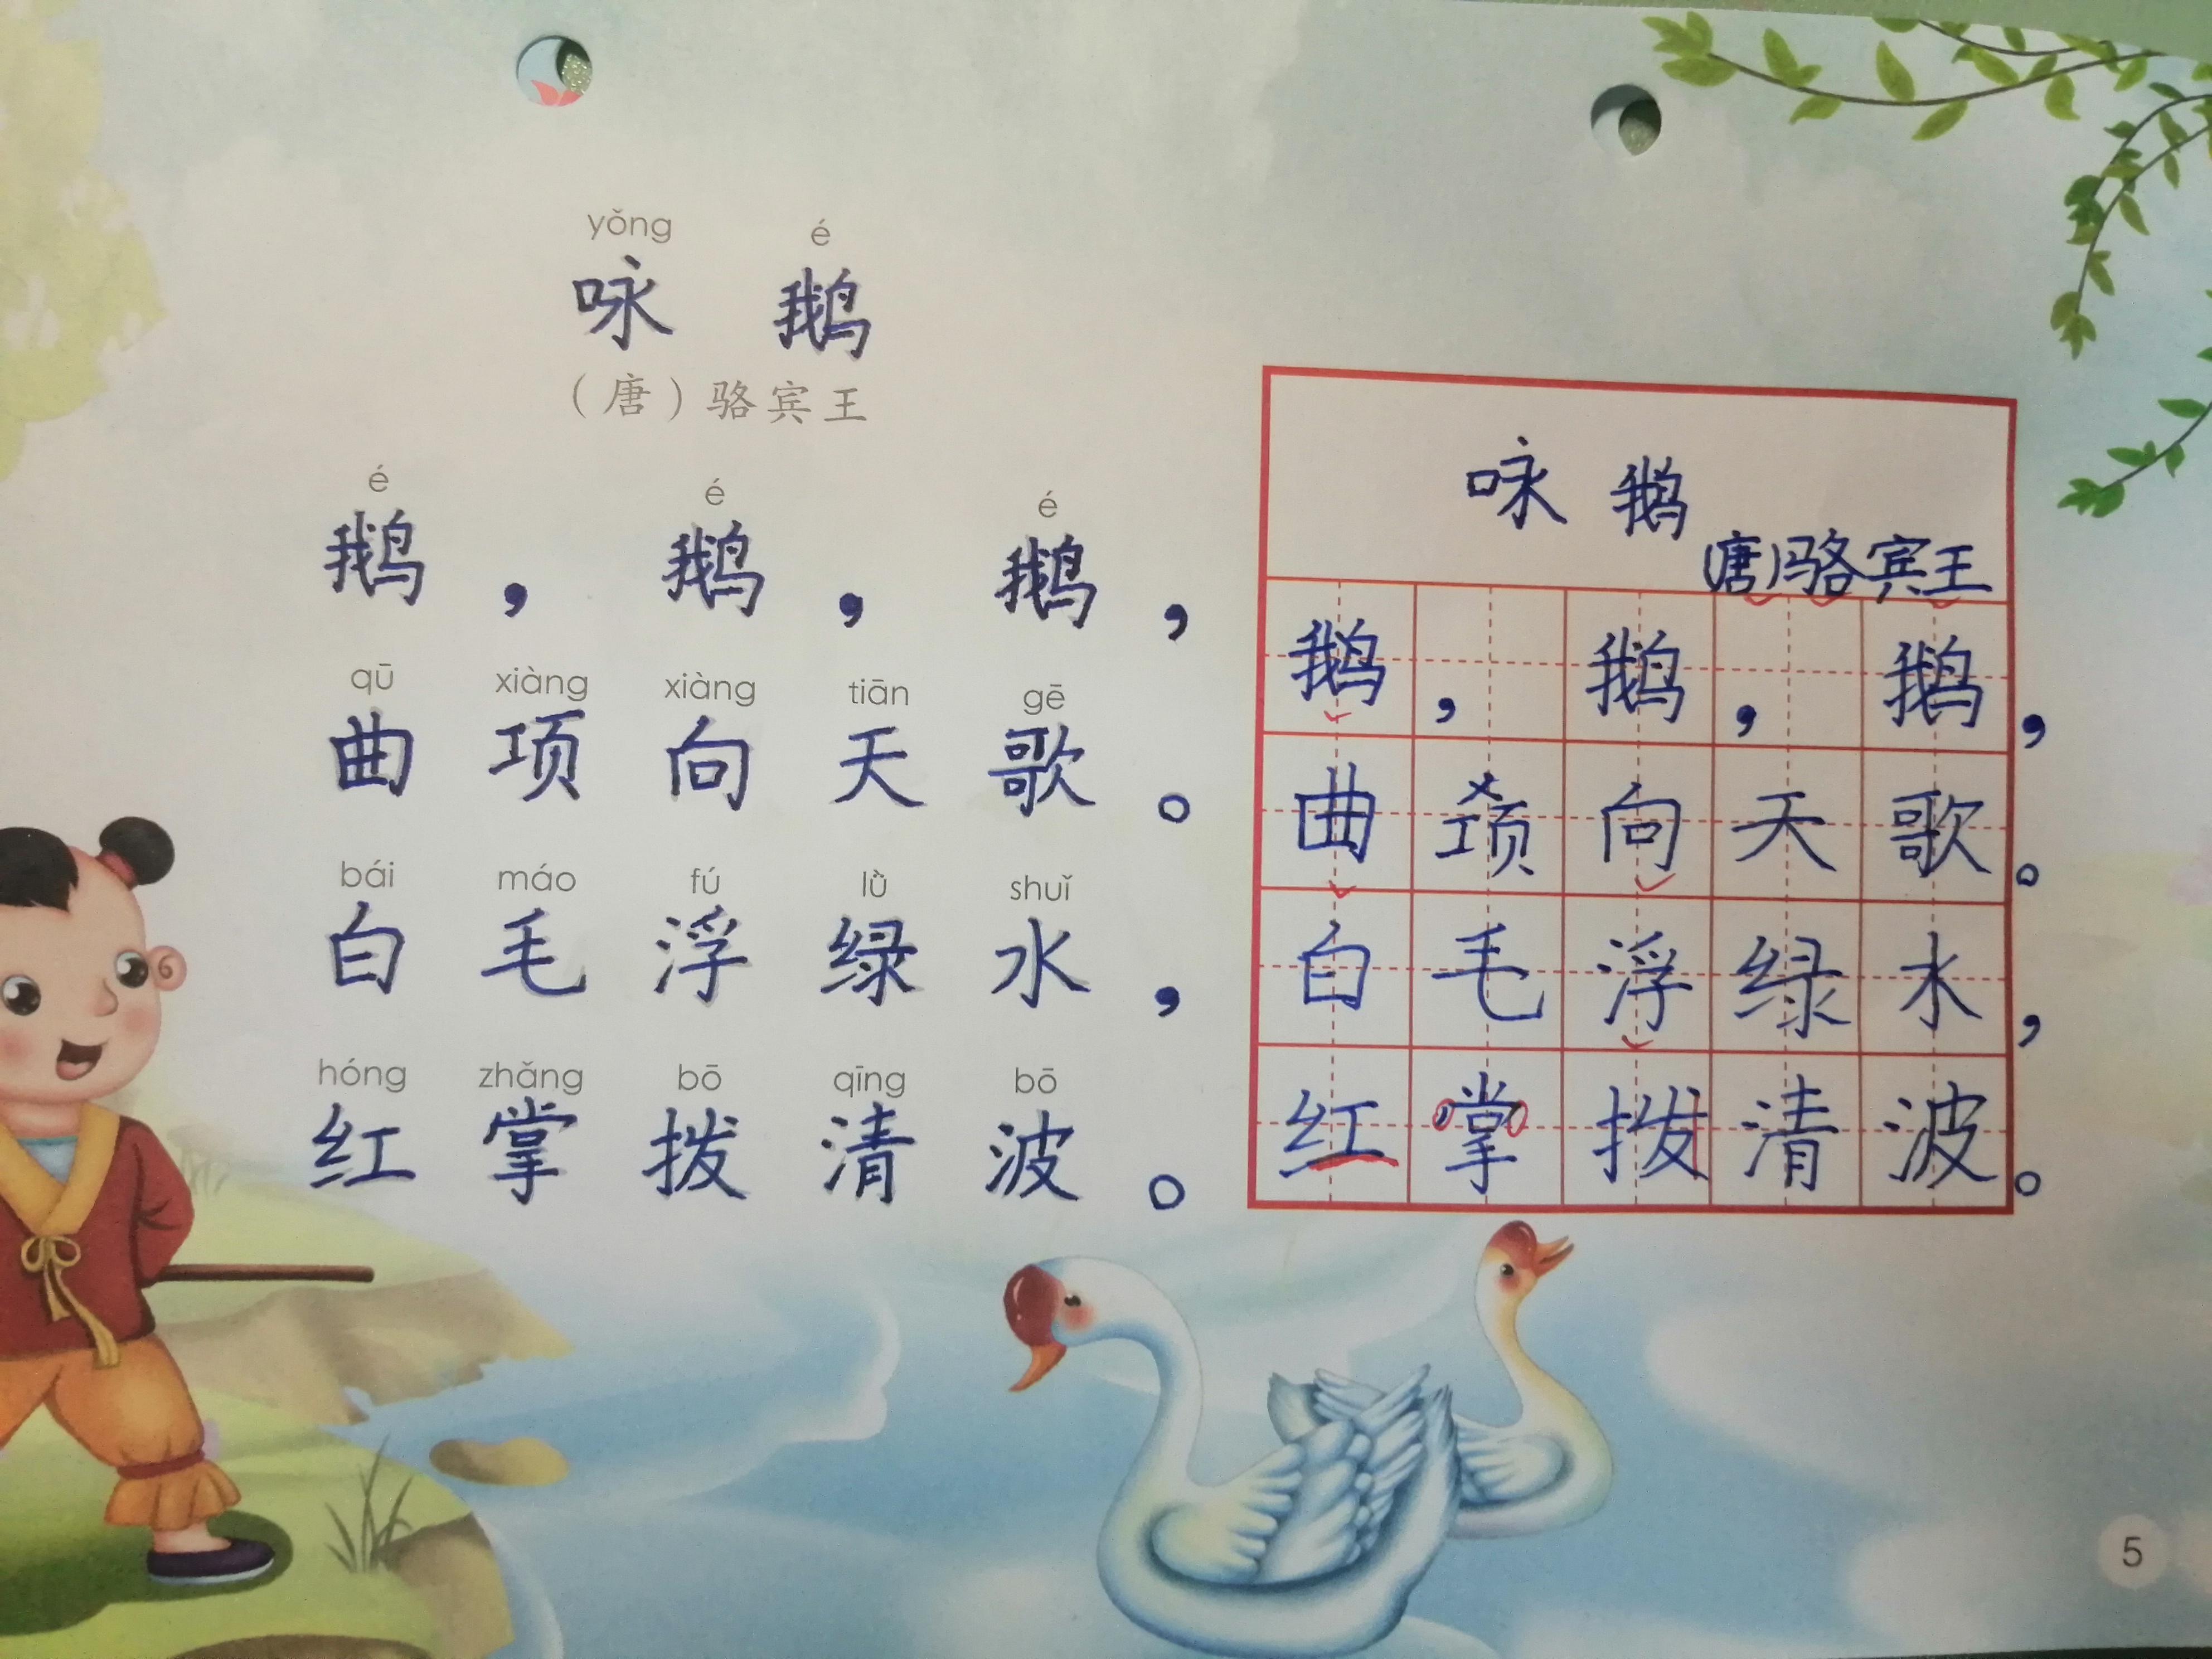 yǒng é
咏 鹅
（唐）骆宾王
é é é
鹅，鹅，鹅，
qū xiàng xiàng tiān gē
曲项向天歌。
bái máo fú lǜ shuǐ
白毛浮绿水，
hóng zhǎng bō qīng bō
红掌拨清波。
咏鹅
（唐）骆宾王
鹅，鹅，鹅，
曲项向天歌。
白毛浮绿水，
红掌拨清波。
5